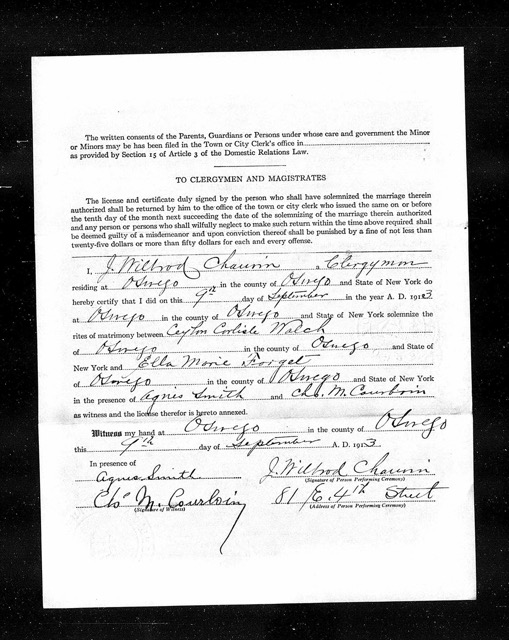 The written consents of the Parents, Guardians or Persons under whose care and government the Minor
or Minors may be has been filed in the Town or City Clerk's office in
as provided by Section 15 of Article 3 of the Domestic Relations Law.
TO CLERGYMEN AND MAGISTRATES
The license and certificate duly signed by the person who shall have solemnized the marriage therein
authorized shall be returned by him to the office of the town or city clerk who issued the same on or before
the tenth day of the month next succeeding the date of the solemnizing of the marriage therein authorized
and any person or persons who shall wilfully neglect to make such return within the time above required shall
be deemed guilty of a misdemeanor and upon conviction thereof shall be punished by a fine of not less than
twenty-five dollars or more than fifty dollars for each and every offense.
I, J. Wilbrod Chauvin a Clergyman
residing at Oswego in the county of Oswego and State of New York do
hereby certify that I did on this 9th day of September in the year A. D. 1913
at Oswego in the county of Oswego and State of New York solemnize the
rites of matrimony between Ceylon Corlisle Walch
of Oswego in the county of Oswego and State of
New York and Ella Marie Forget
of Oswego in the county of Oswego and State of New York
in the presence of Agnes Smith and Chs. M. Courboin
as witness and the license therefor is hereto annexed.
Witness my hand at Oswego in the county of Oswego
this 9th day of September A. D. 1913
In presence of
Agnes Smith J. Wilbrod Chauvin
(Signature of Person Performing Ceremony)
Chs. M. Courboin 81 E. 4th Street
(Signature of Witness) (Address of Person Performing Ceremony)